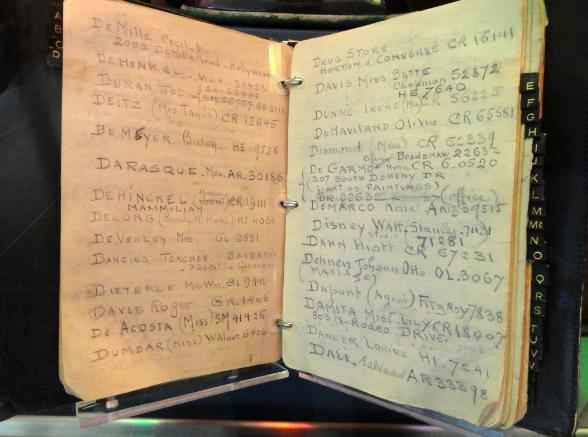 A
B
C
D
DeMille Cecil B
2000 DeMille Road - Hollywood
DeHenkel. W.L.A.
Duran Ted
Deitz (Mrs CR 13645
DeMeyer Baron. HE 9526
DARASQUE. Mrs. AR. 30186
DeHinckel Baron CR 19111
MAXIMILIAN
DeLong HE 4061
DeVerley Mrs. GL 9851
Dancing Teacher Barbara
Dieterle Mrs Wm. GL 9411
David Roger GR. 1406
De Acosta (Miss) SM 41426
Dumbar (Miss) Walnut 6456
Drug Store
Horton & Converse CR 16141
Davis Miss Bette 52872
HE 7640
Dunne Irene (Miss) CR 56225
DeHaviland Olivia CR 65581
Desmond (Miss) CR 52339
Office Bradshaw 22632
De Garmo Home CR 6-0520
1307 South Doheny DR
(Light ed Paintings)
BR 22632 (office)
DeMarco Rene AR 39515
Disney Walt (Stanley - 7131
Studio 71281
Dahn Hiatt CR 67231
Dehnen Johann Otto OL. 3067
(MASSAGE)
Dupont (Agent) Fitzroy 7838
Damita Miss Lily CR 18007
803 N. Rodeo Drive.
Danker Lorine HI - 7241
Dali, Salvador AR 33398
E
F
G
H
I
J
K
L
M, Mc
N
O
Q
R
S
T
U
V